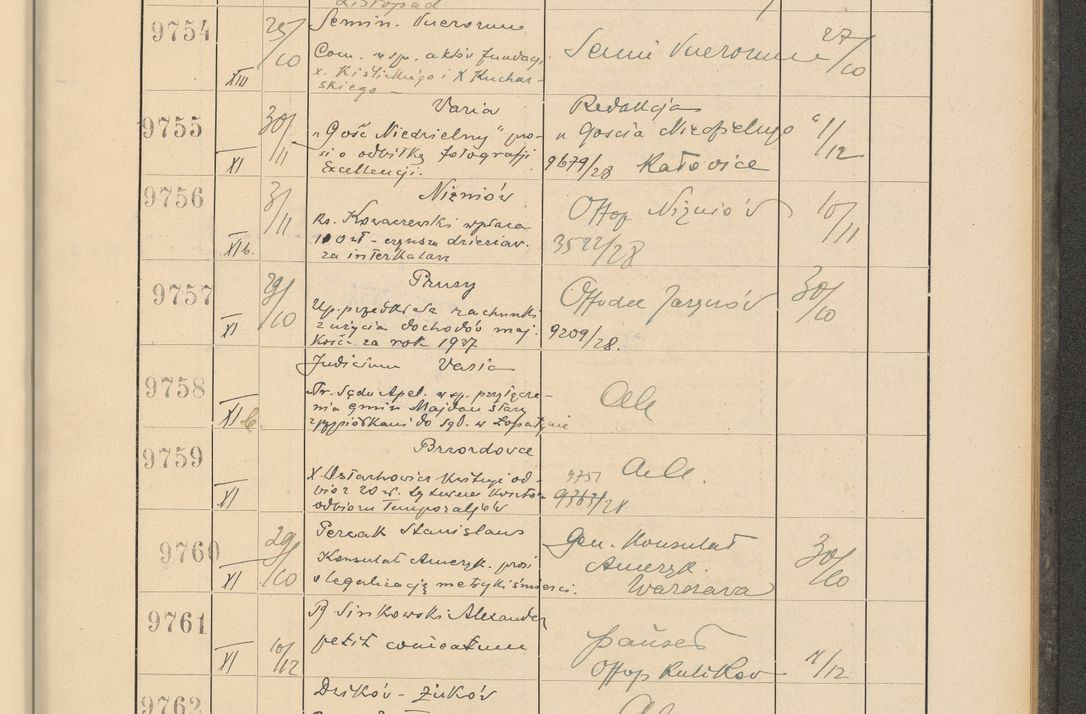 Listopad
9754
XIII
29/10
Semin. Vnerorum
Com. w sp. aktów fundacj.
x. Kislickiego i X Kuchar-
skiego
Semi Vnerorum
27/10
9755
XI
30/11
Varia
"Gość Niedzielny" pro-
si o odbitkę fotografji
Excellencji.
Redakcja
"Gościa Niedzielnego"
9679/28 Katowice
1/12
9756
XIb.
3/11
Niżniów
Ks. Kowaczewski wpłaca
100 zł - czynszu dzierżaw.
za interkalar
Offop Niżniów
3522/28
10/11
9757
XI
29/10
Prusy
Up. przedkłada rachunki
z użycia dochodów maj.
Kość. za rok 1927
Offodec Jaryczów
9209/28.
30/10
9758
XI b
Judicium Varia
Pr. Sądu Apel. w sp. przyłącze-
nia gmin Majdan Stary
z przysiółkami do sąd. w Łopatynie
9759
XI
Brzozdowce
X Ostachowicz kwituje od-
biór 20 w. tytułem kosztów
odbioru Temporaljów
9751
9363/28
9760
XI
29/10
Percak Stanislaus
Konsulat Ameryk. prosi
o legalizację metryki śmierci.
Gen. Konsulat
Ameryk.
Warszawa
30/10
9761
XI
10/12
P Sinkowski Alexander
petit comeatum
Offop Kulików
11/12
9762
Dzików - Żuków